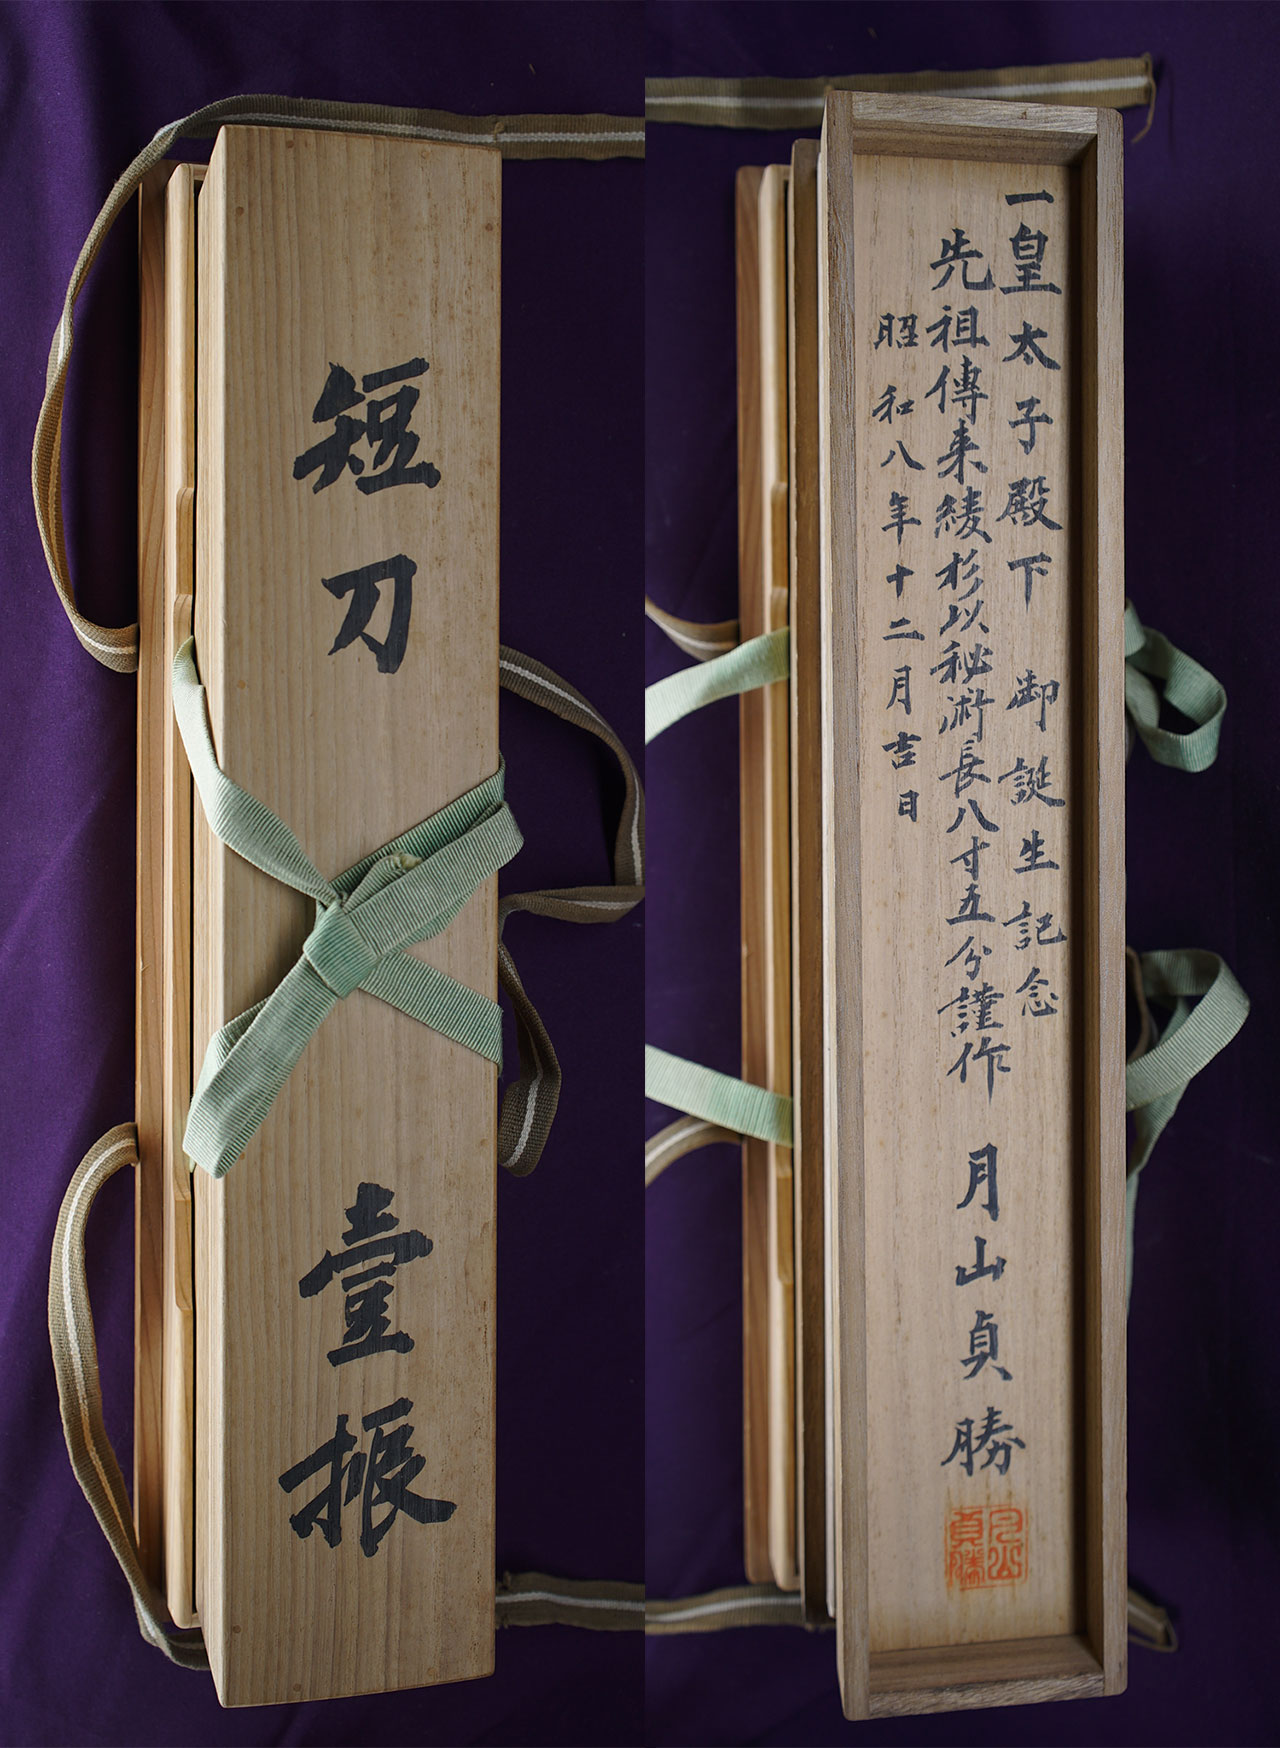 短刀 壹振
一皇太子殿下 御誕生記念
先祖傳来綾杉以秘術長八寸五分謹作 月山貞勝
昭和八年十二月吉日
月山貞勝